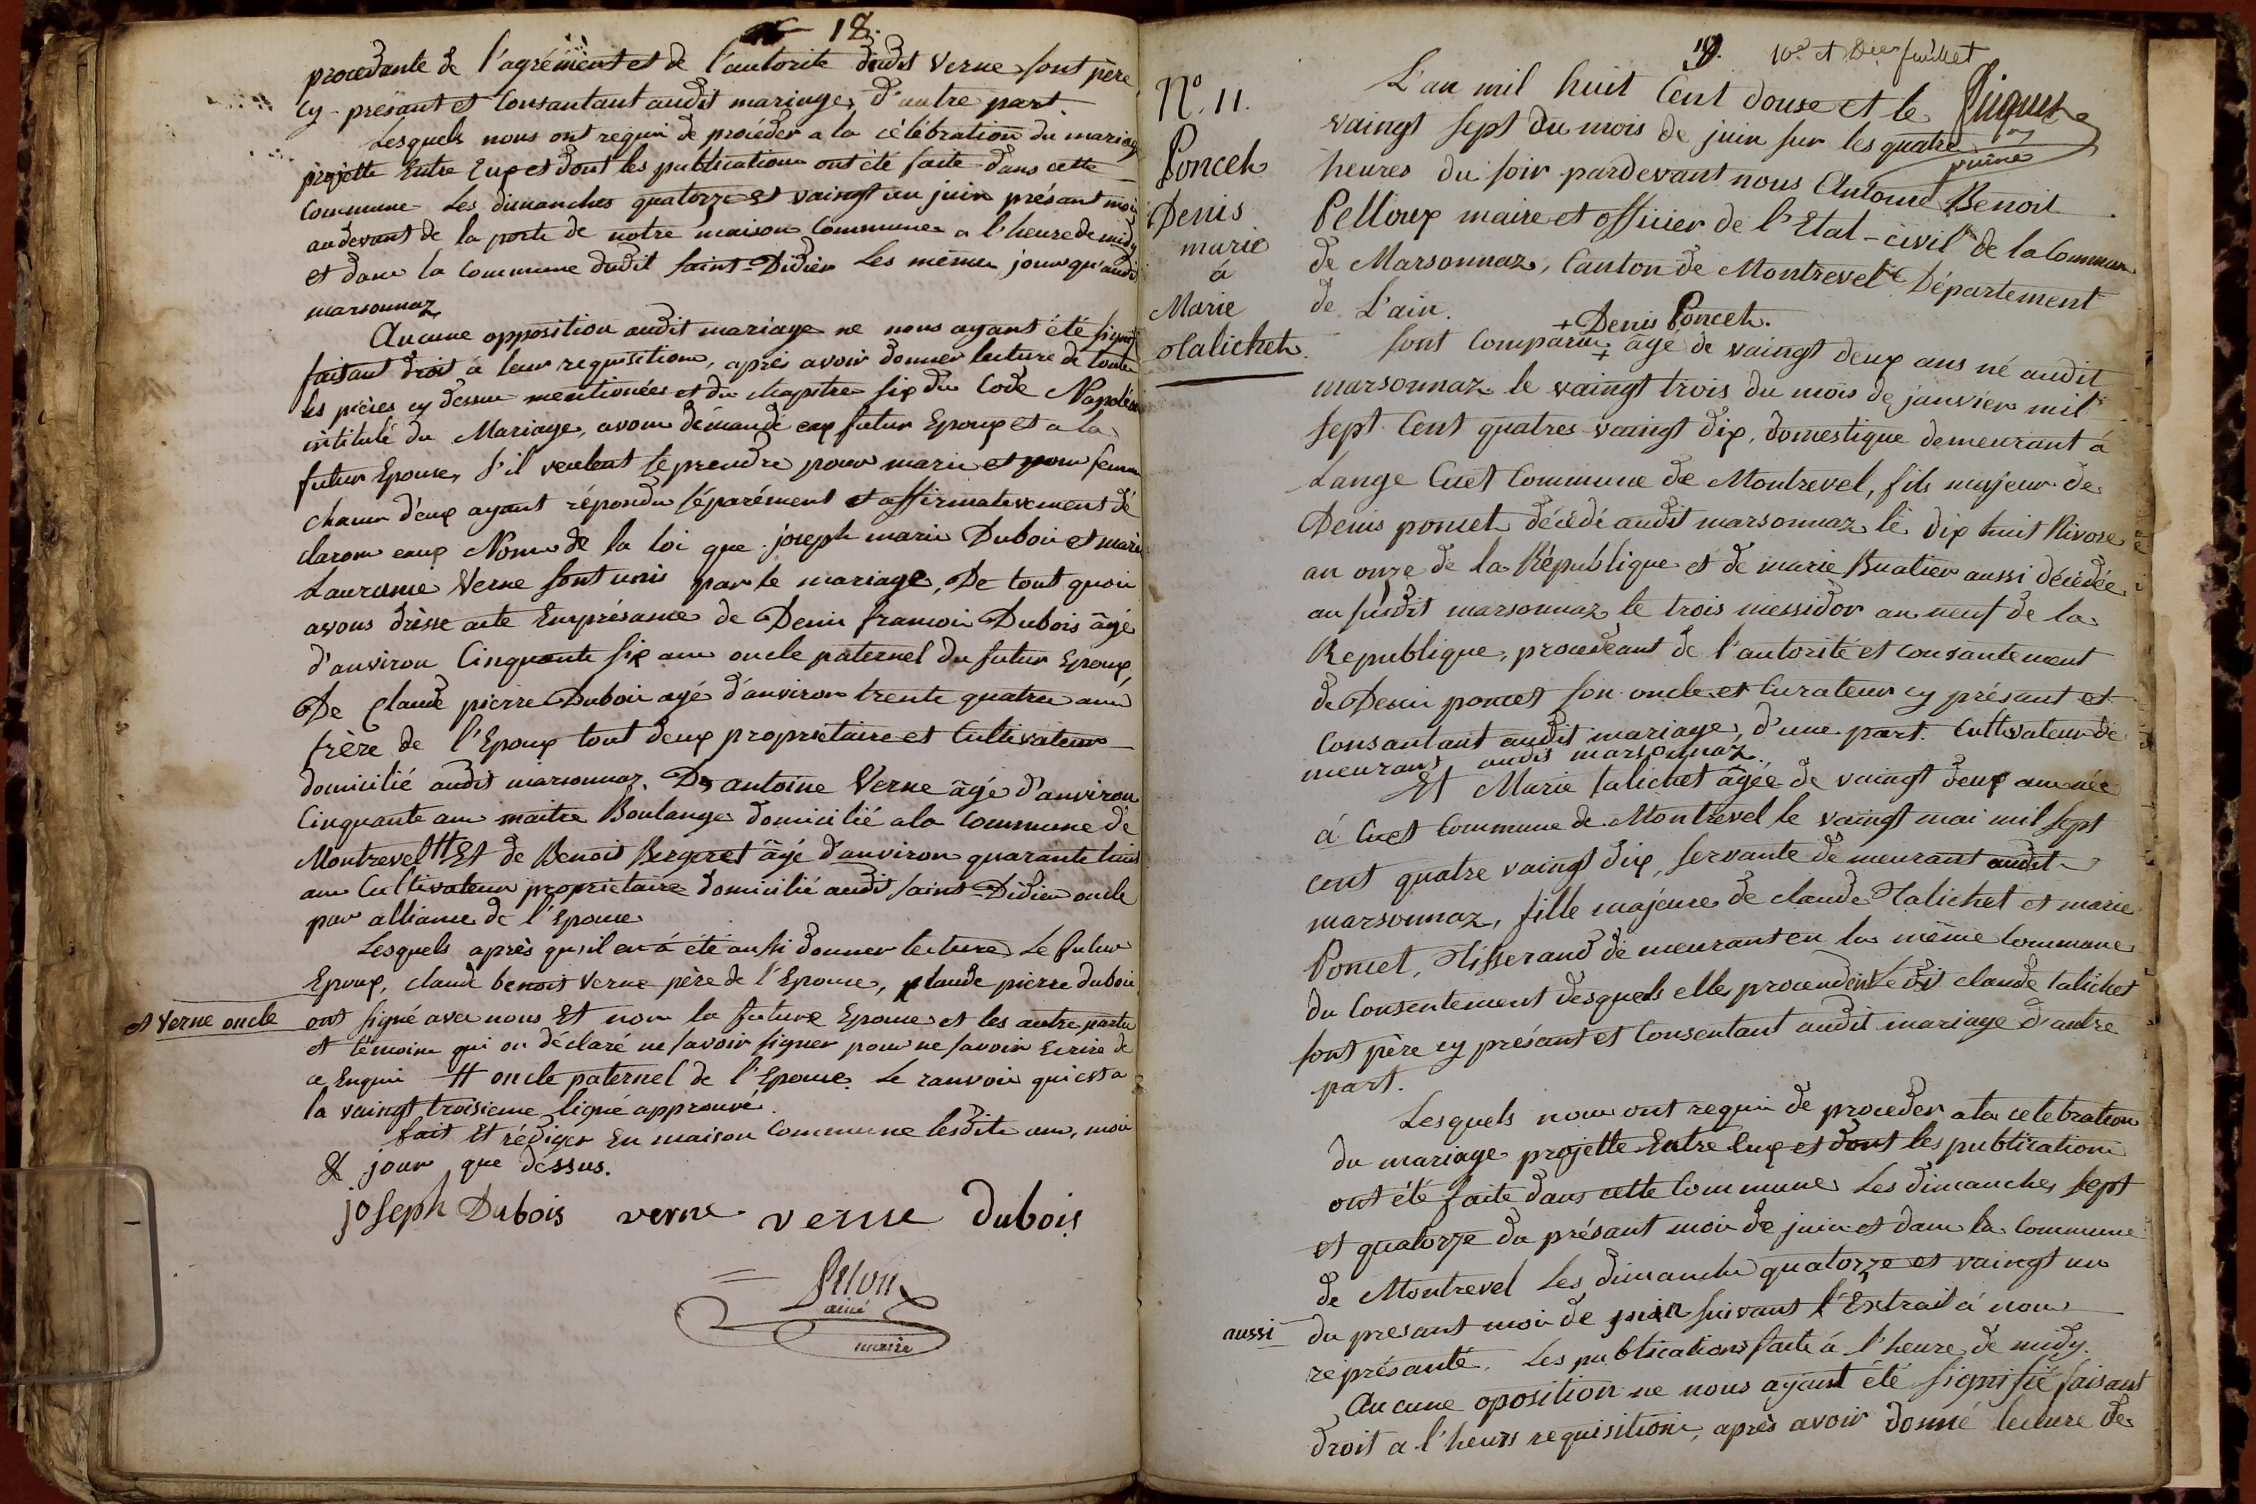 18.
procedante de l'agrément et de l'autorité dudit Verne sont père
cy-présant et Consantant audit mariage, d'autre part
Lesquels nous ont requi de procéder a la célébration du mariage
projetté Entre Eux et dont les publication ont été faite dans cette
Commune Les dimanches quatorze et vaingt un juin présant mois
audevant de la porte de notre maison Commune a l'heure de midy
et dans la Commune dudit Saint-Didier Les même jour qu'audit
marsonnaz
Aucune opposition audit mariage ne nous ayant été signifié
faisant droit à leur requisition, après avoir donner lecture de toute
les pièces cy dessus mentionées et du chapitre six du Code Napoléon
intitulé du Mariage, avons démandé aux futur Epoux et a la
futur Epouse, s'il veulent se prendre pour marie et pour femme
chacun d'eux ayant répondu séparément et affirmativement dé
clarons eaux Nom de la loi que joseph marie Dubois et marie
Laurame Verne sont unis par le mariage, De tout quoi
avons drèssé acte En présance de Denis francois Dubois âgé
d'anviron Cinquante six ans oncle paternel du futur Epoux,
De Claude pierre Dubois agé d'anviron trente quatre ans
frère de l'Epoux tout deux proprietaire et Cultivateur
domicilié audit marsonnaz. De antoine Verne âgé d'anviron
Cinquante ans maitre Boulanger domicilié a la Commune de
Montrevel # Et de Benoit Bergeret âgé d'anviron quarante huit
ans Cultivateur proprietaire domicilié audit Saint-Didier oncle
par alliance de l'Epouse
Lesquels après qu'il en à été aussi donner lecture Le futur
Epoux, claude benoit Verne père de l'Epouse, claude pierre dubois
et Verne oncle
ont signé avec nous Et non la future Epouse et les autre partie
et témoins qui on déclaré ne savoir signer pour ne savoir Ecrire de
ce Enquis # oncle paternel de l'Epouse. Le ranvoi qui est a
la vaingt troisieme ligne approuvé.
fait Et rédiger En maison Commune lesdits an, mois
& jour que dessus.
joseph Dubois verne verne dubois
aîné
maire
19. 10e et Der feuillet
puîné
No. 11.
Poncet
Denis
marié
à
Marie
Talichet
L'an mil huit Cent douse et le
vaingt sept du mois de juin sur les quatre
heures du soir pardevant nous Antoine Benoit
Pelloux maire et officier de l'Etat-civil de la Commune
de Marsonnaz, Canton de Montrevel Département
de L'ain.
+ Denis Poncet.
sont Comparu + âgé de vaingt deux ans né audit
marsonnaz le vaingt trois du mois de janvier mil
sept Cent quatres vaingt dix, domestique demeurant à
Lange Cuet Commune de Montrevel, fils majeur de
Denis poncet décédé audit marsonnaz le dix huit Nivose
an onze de la République et de marie Buatier aussi décédée
au susdit marsonnaz le trois messidor an neuf de la
République, procedeant de l'autorité et consantement
de Denis poncet son oncle et Curateur cy présant et
Consantant audit mariage, d'une part. Cultivateur de
meurant audit marsonnaz.
Et Marie talichet âgée de vaingt deux ans née
à Cuet Commune de Montrevel le vaingt mai mil sept
cent quatre vaingt dix, servante demeurant audit
marsonnaz, fille majeure de claude Talichet et marie
Poncet, Tisserand demeurant en la même Commune
du Consentement desquels elle procendent Ledit claude talichet
sont père cy présant et Consentant audit mariage d'autre
part.
Lesquels nous ont requi de proceder a la celebration
du mariage projetté Entre Eux et dont les publication
ont été faite dans cette Commune Les dimanches sept
et quatorze du présant mois de juin et dans la Commune
de Montrevel Les dimanche quatorze et vaingt un
aussi
du présant mois de juin suivant l'Extrait à nous
réprésanté. Les publications faite à l'heure de midy.
Aucune oposition ne nous ayant été signifié faisant
droit a l'heurs requisition, après avoir donné lecture de